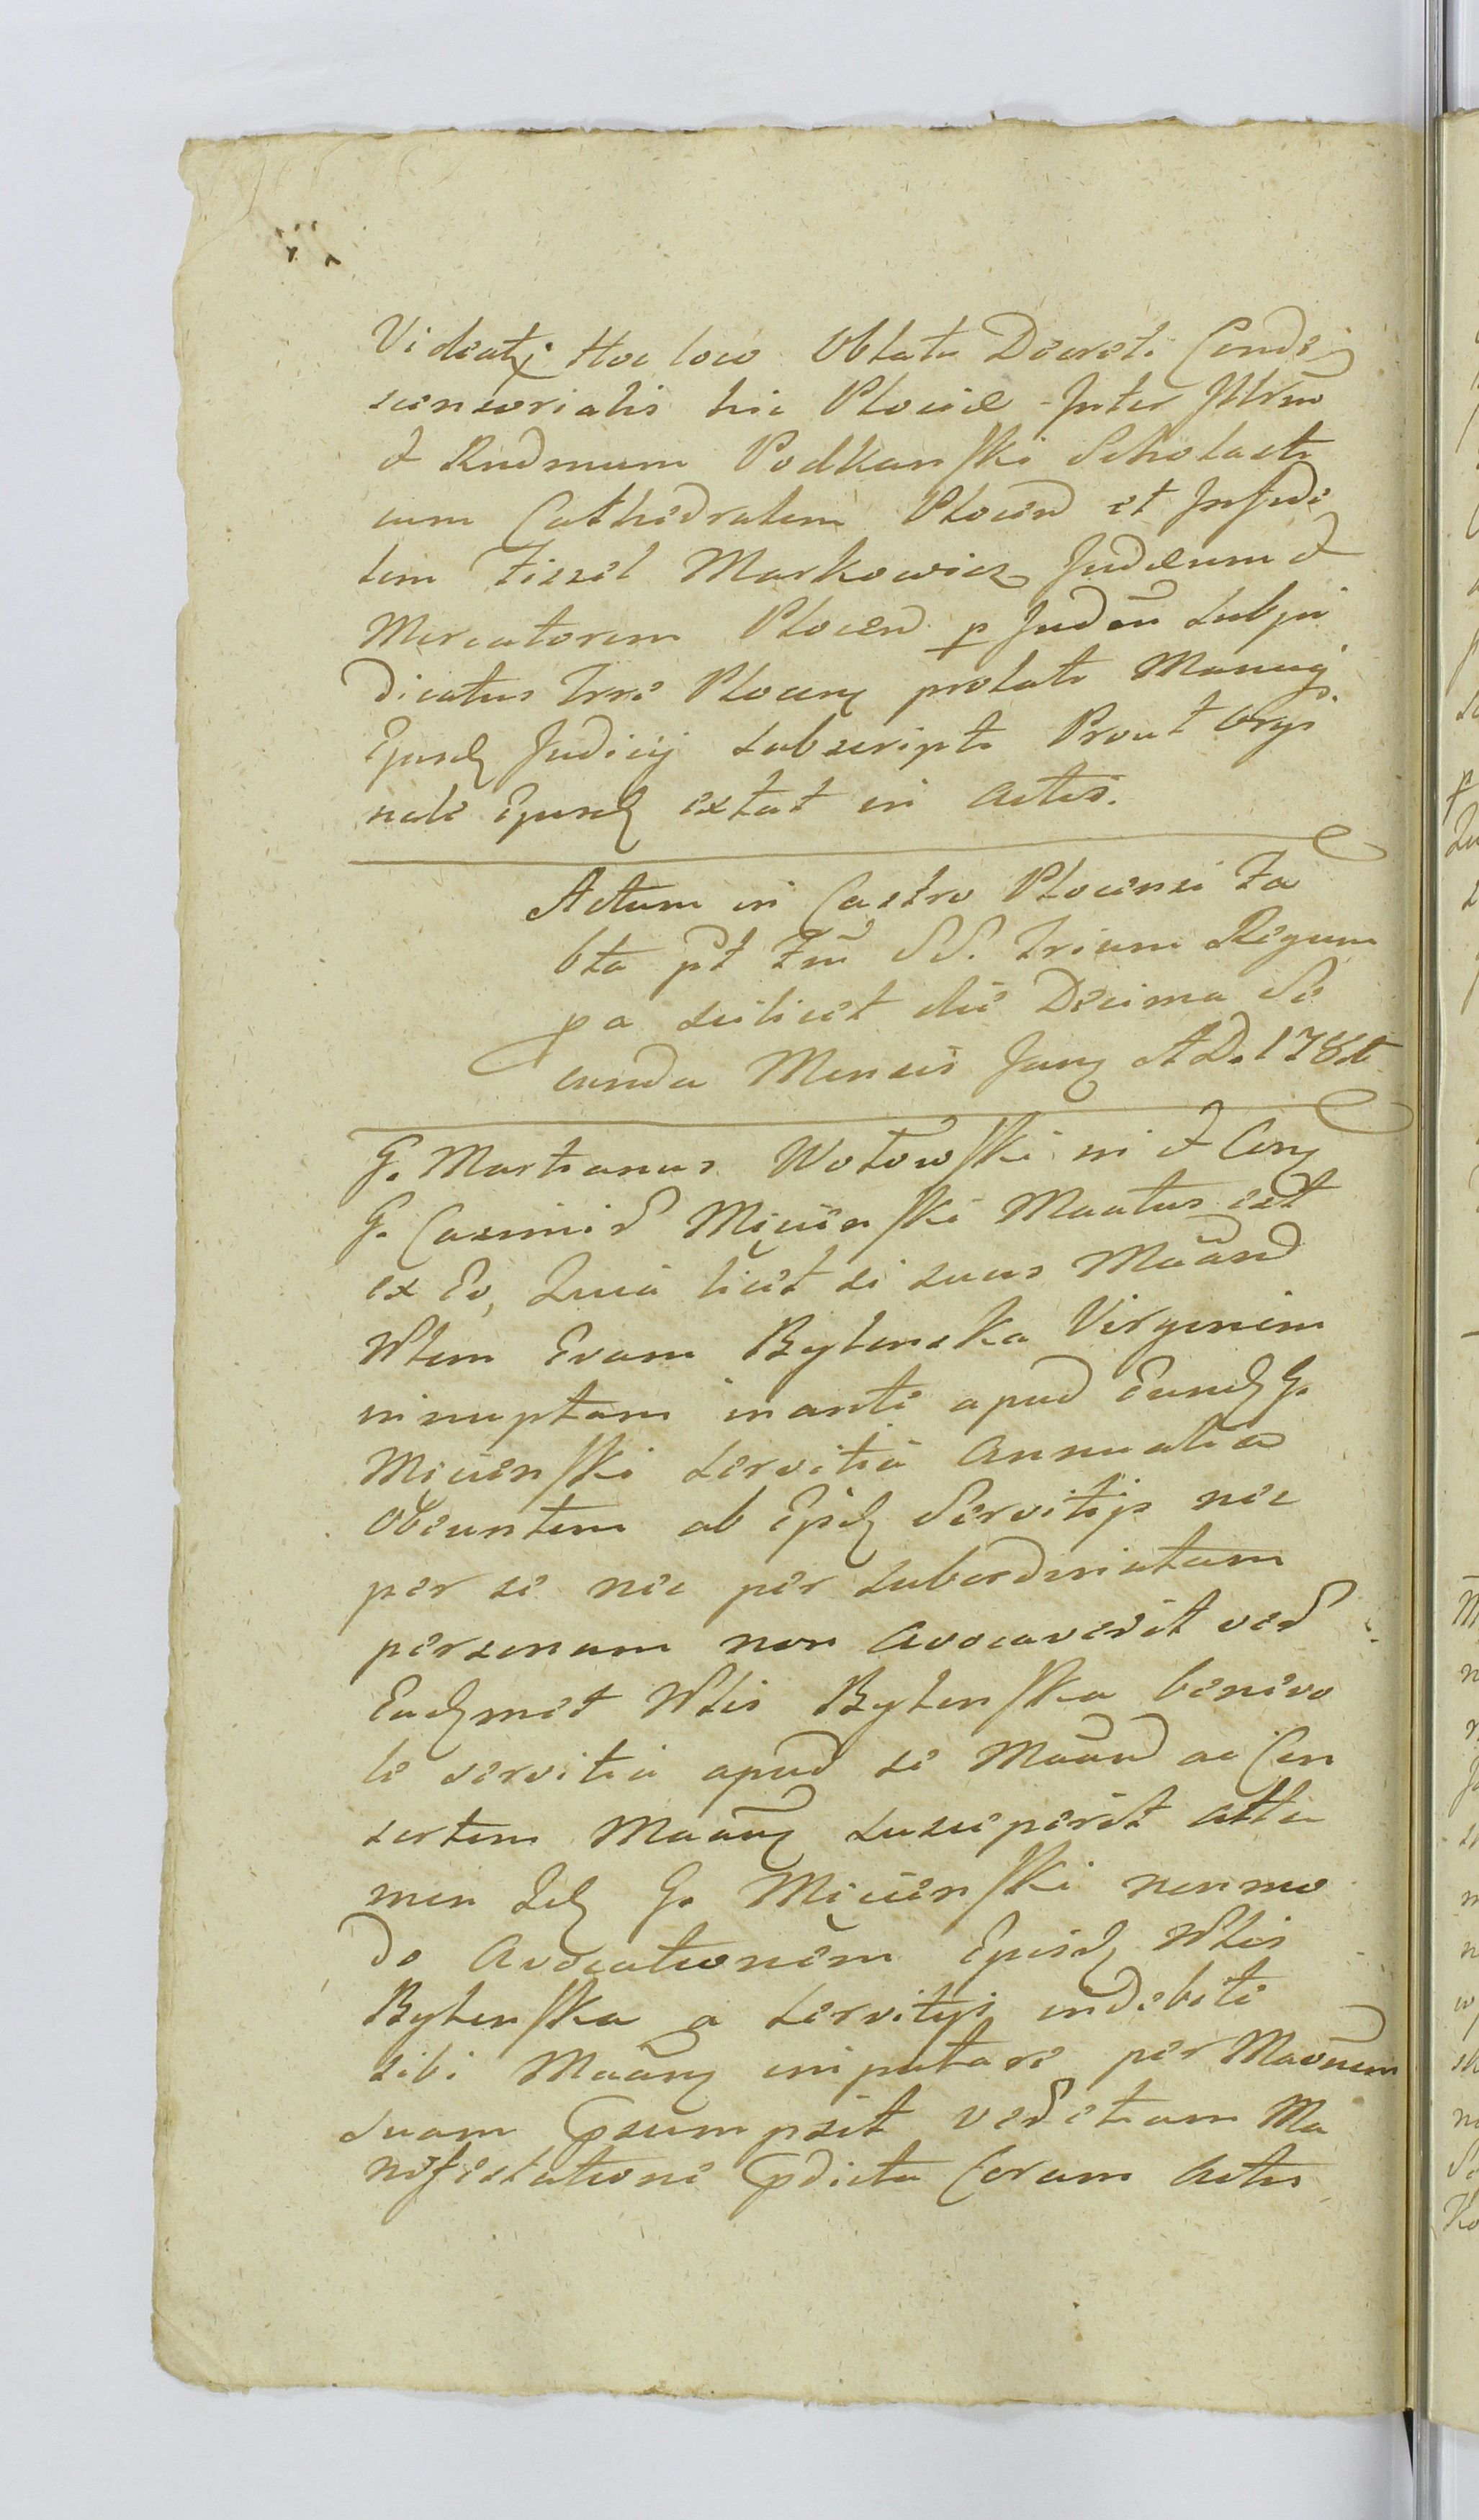 Videatr Hoc loco Oblata Decreti Conde
scensorialis hic Plociæ Inter Jllrm
& Rndmum Podkanski Scholasti
cum Cathedralem Plocen et Infide
lem Fissel Markowicz Judæum &
Mercatorem Plocen p Judm Subju
dicatus Trrê Plocen prolati Manuq
Ejusd Judicij subscripti Prout Orgi
nale Ejusd extat in Actis.
Actum in Castro Plocensi Fa
bta pt Fm SS. Trium Regum
pa scilicet die Decima Se
cunda Mensis Jany A D. 1784
G. Martianus Wotowski in & Con
G. Casimir Mięcienski Maatus est
ex Eo, Quia licet si suus Maand
Nlem Evam Bylenska Virginem
innuptam in ante apud Eund G.
Micienski servitia Annualia
Obeuntem ab Ejsd Servitijs nec
per se nec per subordinatam
personam non Avocaverit ver
Eadmet Nlis Bylenska benevo
le servitia apud se Maand ac Con
sortem Maan susceperit atta
men Id G. Micienski non mo
do Avocationem Ejusd Nlis
Bylenska a Servitijs indebite
sibi Maan imputare per Maonem
suam psumpsit ver etiam Ma
nifestatione pdicta Coram Actis